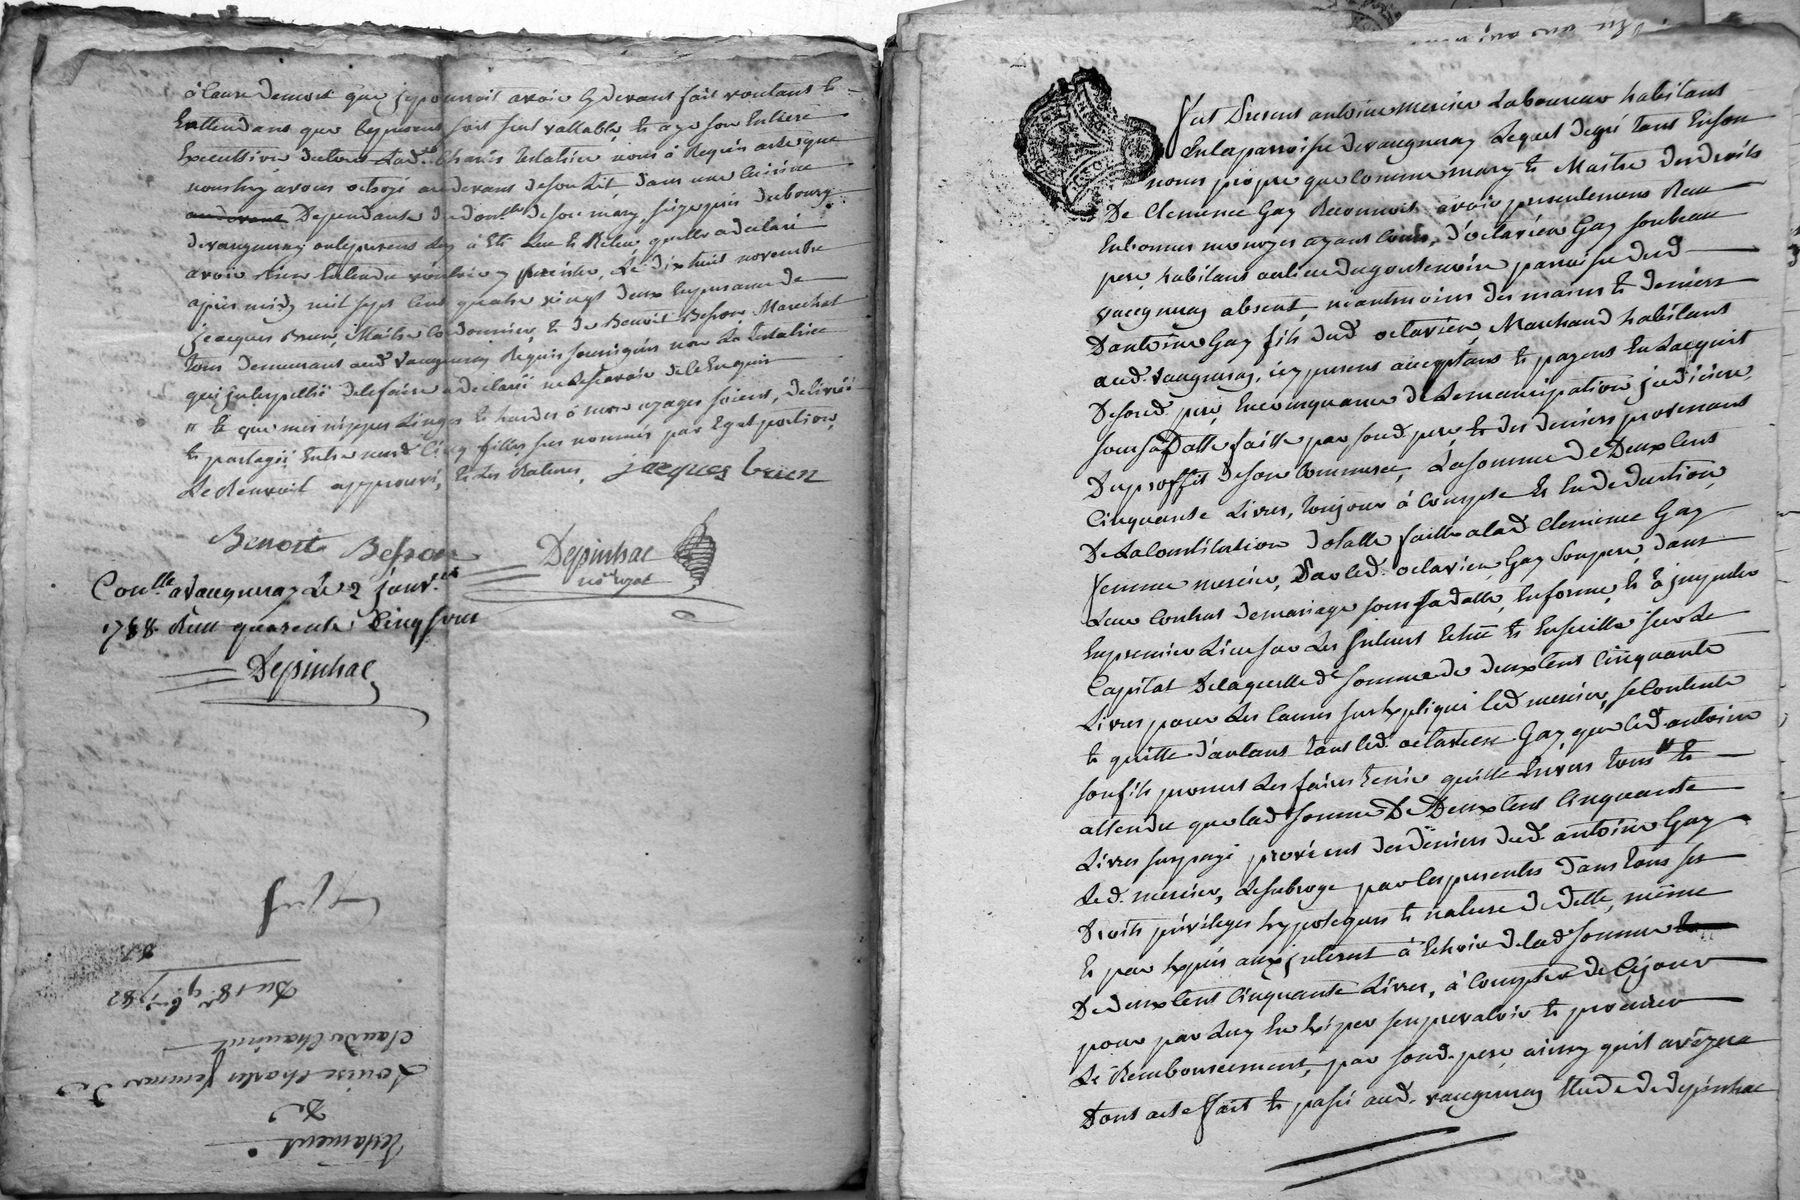 à Cause demort que je pourrois avoir Cy devant fait voulant et
Entendant que le present soit seul vallable et aye son Entiere
Execution dont lad. Charles testatrice nous à Requis acte que
nous luy avons octroyé au devant de son Lit dans une Cuisine
Dependante du domlle de son mary, size pres du bourg
de vaugneray ou le present Luy à Eté Leu et Releu quelle a declaré
avoir bien Entendu vouloir y persister, Le dix huit novembre
après midy mil sept Cent quatre vingt deux En presence de
jacques Brun, Maitre Cordonnier, et de Benoit Besson Marechal
tous demeurant aud. Vaugneray Requis soussignés non La testatrice
qui interpellée de le faire a declaré ne le sçavoir de ce Enquise
" et que mes nippes Linges et hardes à mon usages soient, delivrés
et partagés Entre mesd. Cinq filles sus nommés par Egal portion,
Le Renvoit approuvé, et les Ratures, jacques brun
Benoit Besson
Depinhac
nore royal
Conlle a Vaugneray Le 2 janv.er
1788. Reçu quarente Cinq sous
Depinhac
Testament
De
Louise Charles femme de
Claude
Du 18e 9bre 1782
Fut Present antoine mercier Laboureur habitant
En la parroisse de vaugneray Lequel de gré tant En son
nom propre que Comme mary et Maitre des droits
De Clemence Gay Reconnoit avoir presentement Reçu
En bonnes monoyes ayant Cours, d'octavien Gay son beau
pere, habitant au lieu du parroisse dud.
vaugneray absent, neantmoins des mains et deniers
D'antoine Gay fils dud. octavien, Marchand habitant
aud. Vaugneray, icy present acceptant et payant En Lacquit
De sond. pere, En Consequance de Lemancipation judiciere,
sous sa datte faitte par sond. pere et des deniers provenant
Du proffit de son Commerce, La somme de Deux Cent
Cinquante Livres, toujour à Compte et En deduction
De La Constitution dotalle faitte a lad. Clemence Gay
femme mercier, Par led. octavien Gay son pere, dans
Leur Contrat de mariage sous sa datte, En forme, et à jmputer
En premier Lieu sur Les jnterets Echus et Ensuitte sur Le
Capital De laquelle de somme de deux Cent Cinquante
Livres pour Les Causes sus Expliqué led. mercier, se Contente
et quitte d'autant tant led. octavien Gay, que led. antoine
son fils promet Les faires tenir quitte Envers tous et
attendu que lad. somme De Deux Cent Cinquante
Livres sus payé provient des deniers dud. antoine Gay
Led. mercier, Le subroge par les presentes dans tous ses
Droits privileges hypoteques et nature de dette, même
et par Exprès aux jnterest à Echoir de lad. somme
De deux Cent Cinquante Livres, à Compter de Ce jour
pour par Luy En Exiger s'en prevaloir et procurer
Le Remboursement, par sond. pere, ainsy quil avizera
Dont acte Fait et passé aud. vaugneray Etude de depinhac